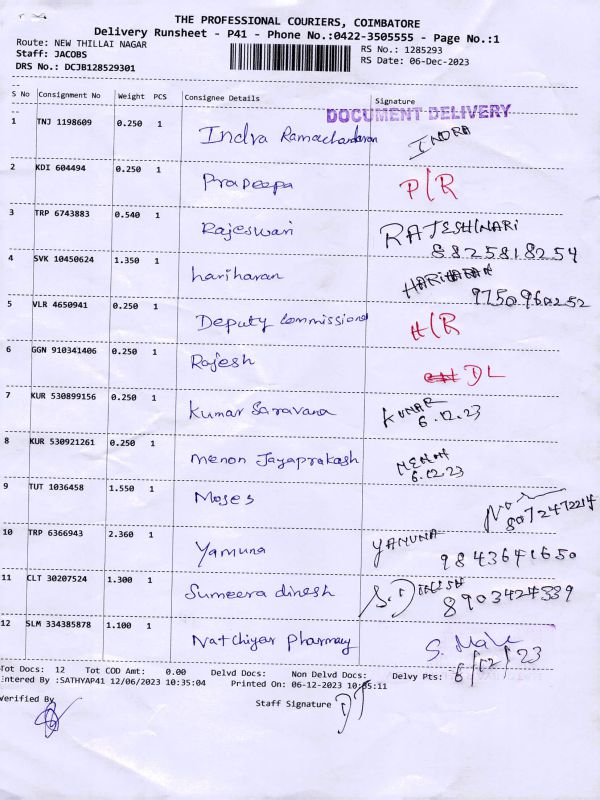 THE PROFESSIONAL COURIERS, COIMBATORE
Delivery Runsheet - P41 - Phone No.:0422-3505555 - Page No.:1
Route: NEW THILLAI NAGAR
RS No.: 1285293
Staff: JACOBS
RS Date: 06-Dec-2023
DRS No.: DCJB128529301
S No Consignment No Weight PCS Consignee Details Signature
DOCUMENT DELIVERY
1 TNJ 1198609 0.250 1 Indra Ramachandaran INDRA
2 KDI 604494 0.250 1 Pradeepa P/R
3 TRP 6743883 0.540 1 Rajeswari RAJESHWARI
8825818254
4 SVK 10450624 1.350 1 hariharan HARIHARAN
9750960252
5 VLR 4650941 0.250 1 Deputy Commissional H/R
6 GGN 910341406 0.250 1 Rajesh DL
7 KUR 530899156 0.250 1 Kumar Saravana KUMAR
6.12.23
8 KUR 530921261 0.250 1 Menon Jayaprakash MENON
6.12.23
9 TUT 1036458 1.550 1 Moses
8072472214
10 TRP 6366943 2.360 1 Yamuna YAMUNA
9843641650
11 CLT 30207524 1.300 1 Sumeera dinesh S. DINESH
8903424339
12 SLM 334385878 1.100 1 Natchiyar pharmacy S. Male
6/12/23
Tot Docs: 12 Tot COD Amt: 0.00 Delvd Docs: Non Delvd Docs: Delvy Pts:
Entered By :SATHYAP41 12/06/2023 10:35:04 Printed On: 06-12-2023 10:35:11
Verified By
Staff Signature